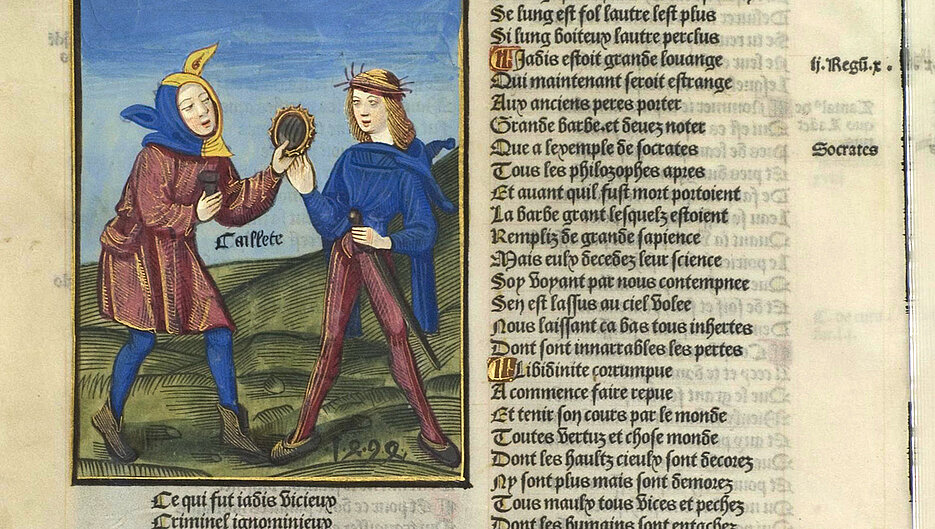 Caillete
Ce qui fut iadis vicieux
Criminel ignominieux
Se lung est fol lautre lest plus
Si lung boiteux lautre perclus
Jadis estoit grande louange
Qui maintenant seroit estrange
Aux anciens peres porter
Grande barbe. et devez noter
Que a lexemple de socrates
Tous les philosophes apres
Et avant quil fust mort portoient
La barbe grant lesquelz estoient
Rempliz de grande sapience
Mais eulx decedez leur science
Soy voyant par nous contempnee
Sen est lassus au ciel volee
Nous laissant ca bas tous inhertes
Dont sont innarrables les pertes
Libidinite corrumpue
A commence faire repue
Et tenir son cours par le monde
Toutes vertuz et chose monde
Dont les haultz cieulx sont decorez
Ny sont plus mais sont demorez
Tous maulx tous vices et pechez
Dont les humains sont entachez
ij. Regū. x.
Socrates